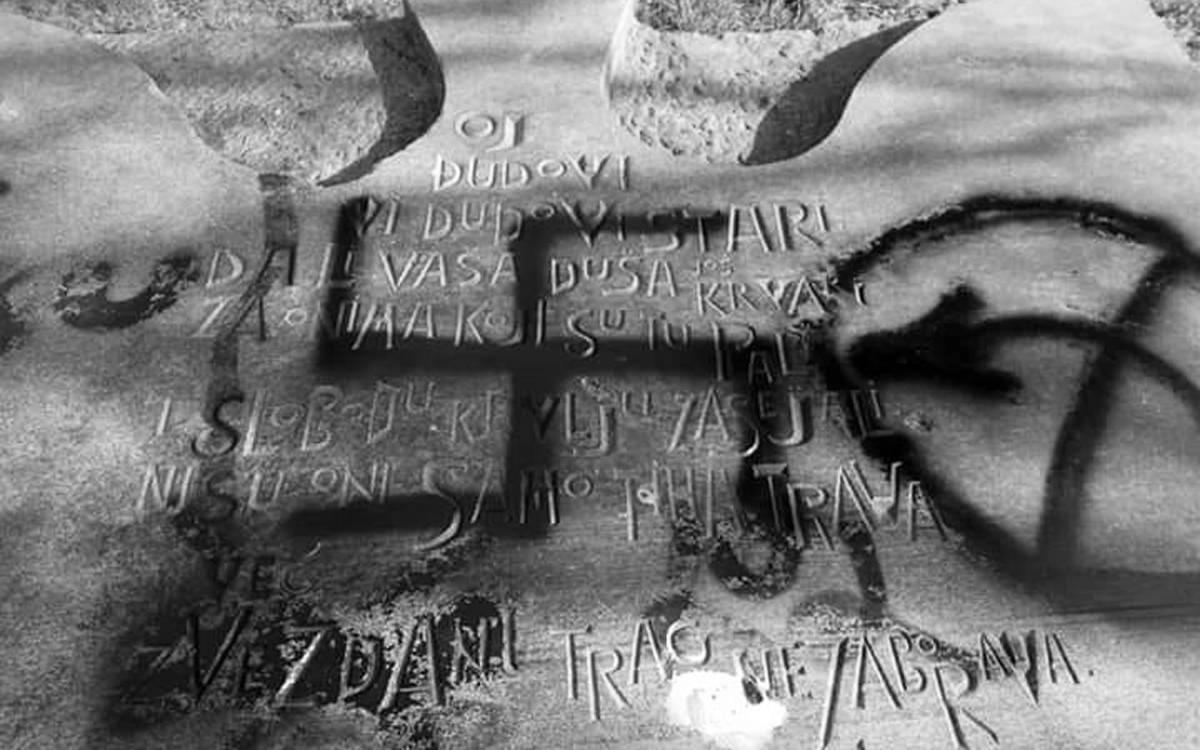 OJ
DUDOVI
VI DUDOVI STARI
DA LI VAŠA DUŠA JOŠ KRVARI
ZA ONIMA KOJI SU TU PALI
I SLOBODU KRVLJU ZASEJALI
NISU ONI SAMO TIHA TRAVA
VEĆ
ZVEZDANI TRAG NEZABORAVA.